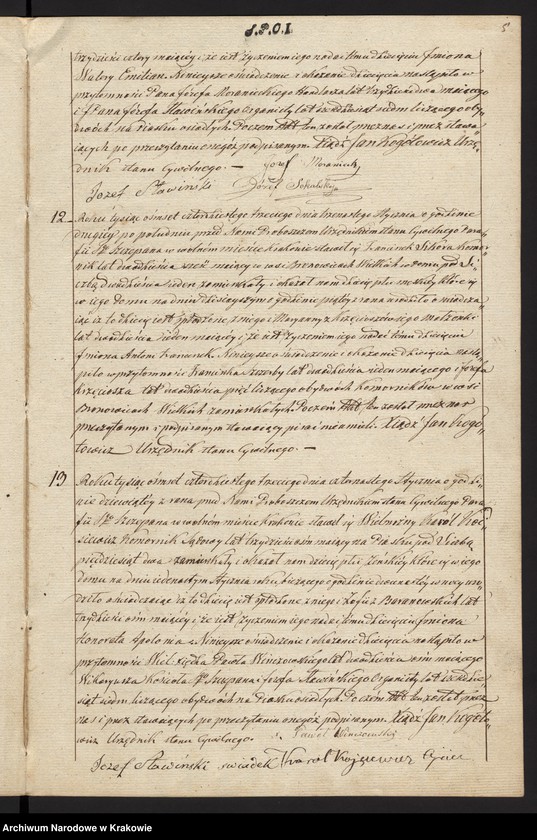 S.P.O.I.
5
trzydzieści cztery mający i że iest życzeniem iego nadać temu dziecięciu Imiona
Walery Emilian. Niniejsze oświadczenie i okazanie dziecięcia nastąpiło w
przytomności Pana Józefa Moranieckiego lat mającego
i Pana Józefa Sławińskiego Organisty lat siedm liczącego oby„
dwóch na Piasku osiadłych. Poczem Akt ten został przez nas i przez stawa„
iących po przeczytaniu onegoż podpisanym. Xiądz Jan Rogótowicz Urzę„
dnik stanu Cywilnego. — Józef Moraniecki
Jozef Sławinski Józef Sokulski
12 Roku tysiąc ośmset czterdziestego trzeciego dnia trzynastego Stycznia o godzinie
drugiéy po południu przed Nami Proboszczem Urzędnikiem stanu Cywilnego Para„
fii Sgo Szczepana w wolném mieście Krakowie stawił się Kanimek Sikora Komor„
nik lat dwadzieścia sześć mający w wsi Bronowicach Wielkich w domu pod Li„
czbą dwadzieścia ieden zamieszkały i okazał nam dziecię płci męzkiey które się
w iego domu na dniu dzisieyszym o godzinie piątey z rana urodziło oświadcza„
iąc iż to dziecię iest spłodzone z niego i Maryanny z małzonki
lat dwadzieścia ieden mający i że iest życzeniem iego nadać temu dziecięciu
Imiona Antoni Kanimek. Niniejsze oświadczenie i okazanie dziecięcia nastą„
piło w przytomności Kanimka lat dwadzieścia ieden mającego i Józefa
lat dwadzieścia pięć liczącego obydwóch Komorników w wsi
Bronowicach Wielkich zamieszkałych. Poczem Akt ten został przez nas
przeczytanym i podpisanym stawaiący pisać nieumieli. Xiądz Jan Rogó„
towicz Urzędnik stanu Cywilnego. —
13 Roku tysiąc ośmset czterdziestego trzeciego dnia czternastego Stycznia o godzi„
nie dziewiątéy z rana przed Nami Proboszczem Urzędnikiem stanu Cywilnego Para„
fii Sgo Szczepana w wolném mieście Krakowie stawił się Wielmożny Karól Koj„
siewicz Komornik Sądowy lat trzydzieści ośm mający na Piasku pod Liczbą
pięćdziesiąt dwa zamieszkały i okazał nam dziecię płci żeńskiéy które się w iego
domu na dniu iedenastym Stycznia roku bieżącego o godzinie dwunastéy w nocy uro„
dziło oświadczaiąc iż to dziecię iest spłodzone z niego i Zofii z Baranowskich lat
trzydzieści ośm mający i że iest życzeniem iego nadać temu dziecięciu Imiona
Honorata Apolonia. Niniejsze oświadczenie i okazanie dziecięcia nastąpiło w
przytomności Wiel. Xiędza Pawła Winczowskiego lat dwadzieścia ośm mającego
Wikaryusza Kościoła Sgo Szczepana i Józefa Sławińskiego Organisty lat
siąt siedm liczącego obydwóch na Piasku osiadłych. Poczem Akt ten został przez
nas i przez stawaiących po przeczytaniu onegoż podpisanym. Xiądz Jan Rogóto„
wicz Urzędnik stanu Cywilnego. X. Paweł Winczowski
Jozef Sławinski swiadek Karol Kojsiewicz Ojciec
Archiwum Narodowe w Krakowie
www.szukajwarchiwach.gov.pl